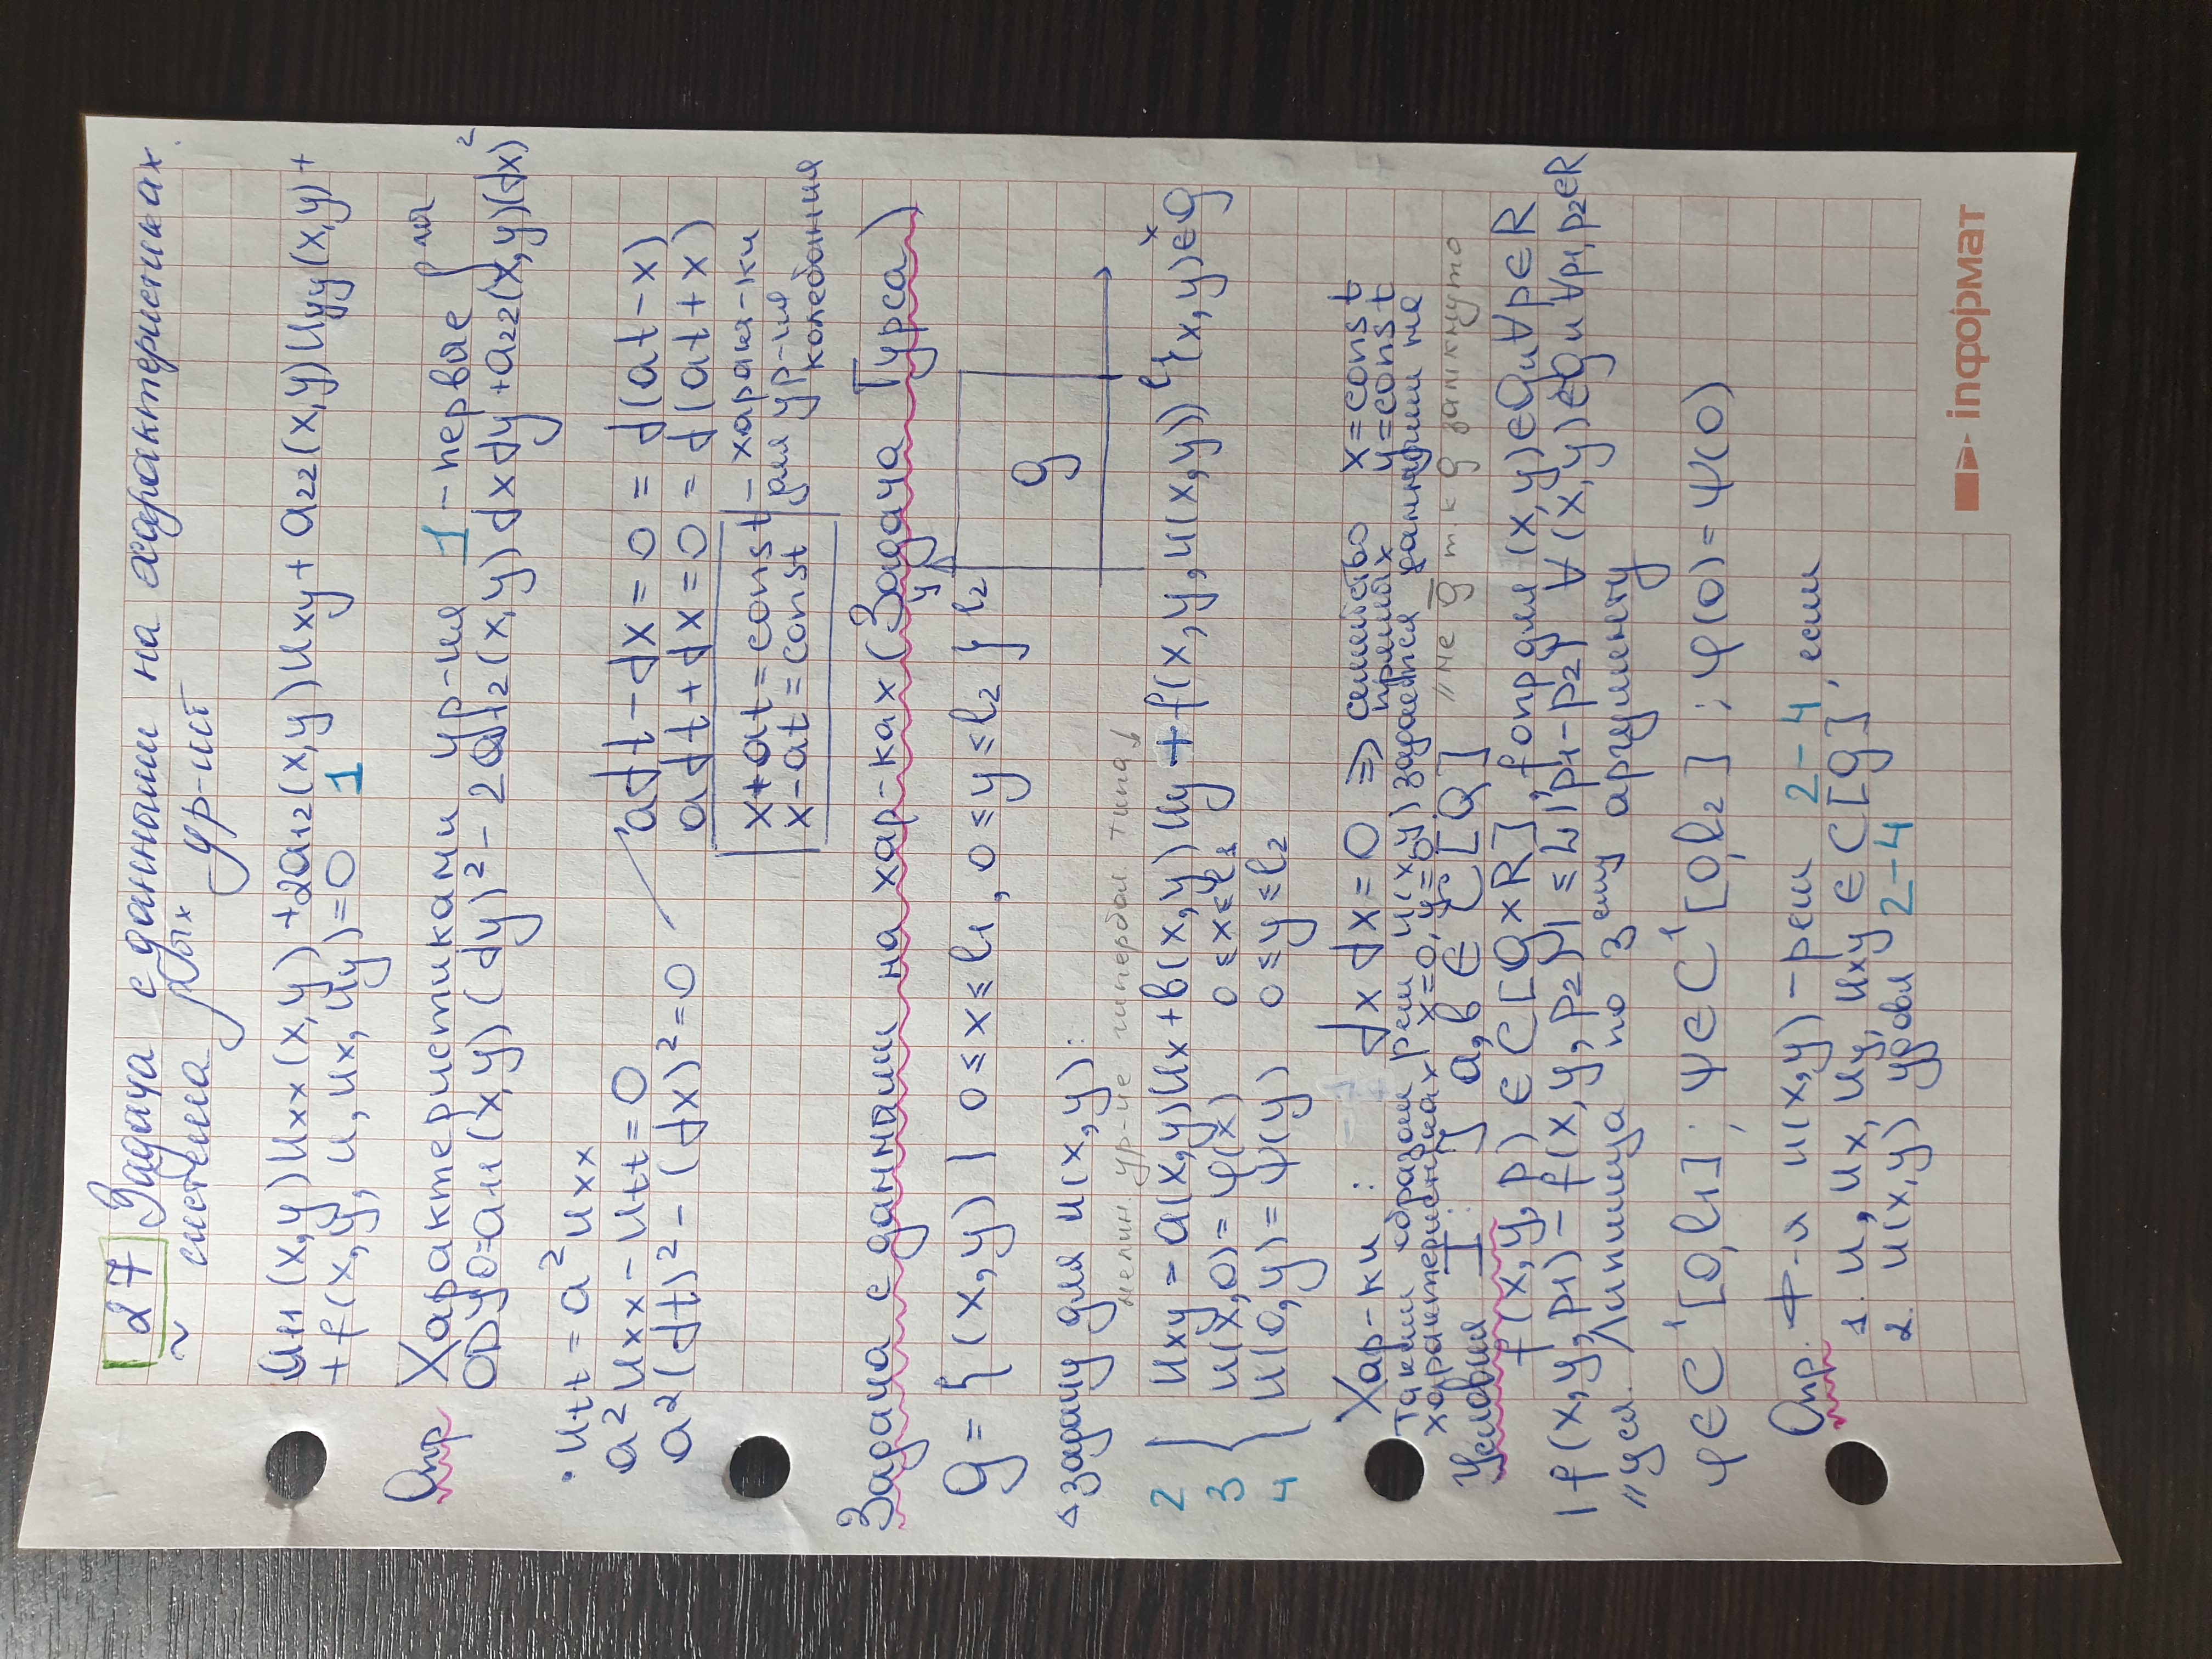 27 Задача с данными на характеристиках.
~ система р-ых ур-ий
a11(x,y)uxx(x,y)+2a12(x,y)uxy+a22(x,y)uyy(x,y)+
+f(x,y,u,ux,uy)=0 1
Опр Характеристиками ур-ия 1 - первые ∫ лы
ОДУ 0=a11(x,y)(dy)²-2a12(x,y)dxdy+a22(x,y)(dx)²
• utt=a²uxx
a²uxx-utt=0 adt-dx=0=d(at-x)
a²(dt)²-(dx)²=0 adt+dx=0=d(at+x)
x+at=const - характ-ки
x-at=const для ур-ия колебания
Задача с данными на хар-ках (Задача Гурса)
g={(x,y)|0≤x≤l1, 0≤y≤l2} y l2 g l1 x
◁ задачу для u(x,y):
нелин. ур-ие гипербол. типа↓
2 uxy=a(x,y)ux+b(x,y)uy+f(x,y,u(x,y)) (x,y)∈g
3 u(x,0)=φ(x) 0≤x≤l1
4 u(0,y)=ψ(y) 0≤y≤l2
Хар-ки: dx dx=0 ⇒ семейство прямых x=const y=const
Таким образом реш u(x,y) задается данными на
характеристиках x=0, y=0
"не g̅ т.к g замкнуто
Условия I: a,b∈C[g]
f(x,y,p)∈C[g×R], f опр для (x,y)∈g и ∀p∈R
|f(x,y,p1)-f(x,y,p2)|≤L|p1-p2| ∀(x,y)∈g и ∀p1,p2∈R
"усл. Липшица по 3 ему аргументу
φ∈C¹[0,l1]; ψ∈C¹[0,l2]; φ(0)=ψ(0)
Опр. Ф-я u(x,y)-реш 2-4, если
1. u,ux,uy,uxy∈C[g],
2. u(x,y) удовл 2-4
inформат